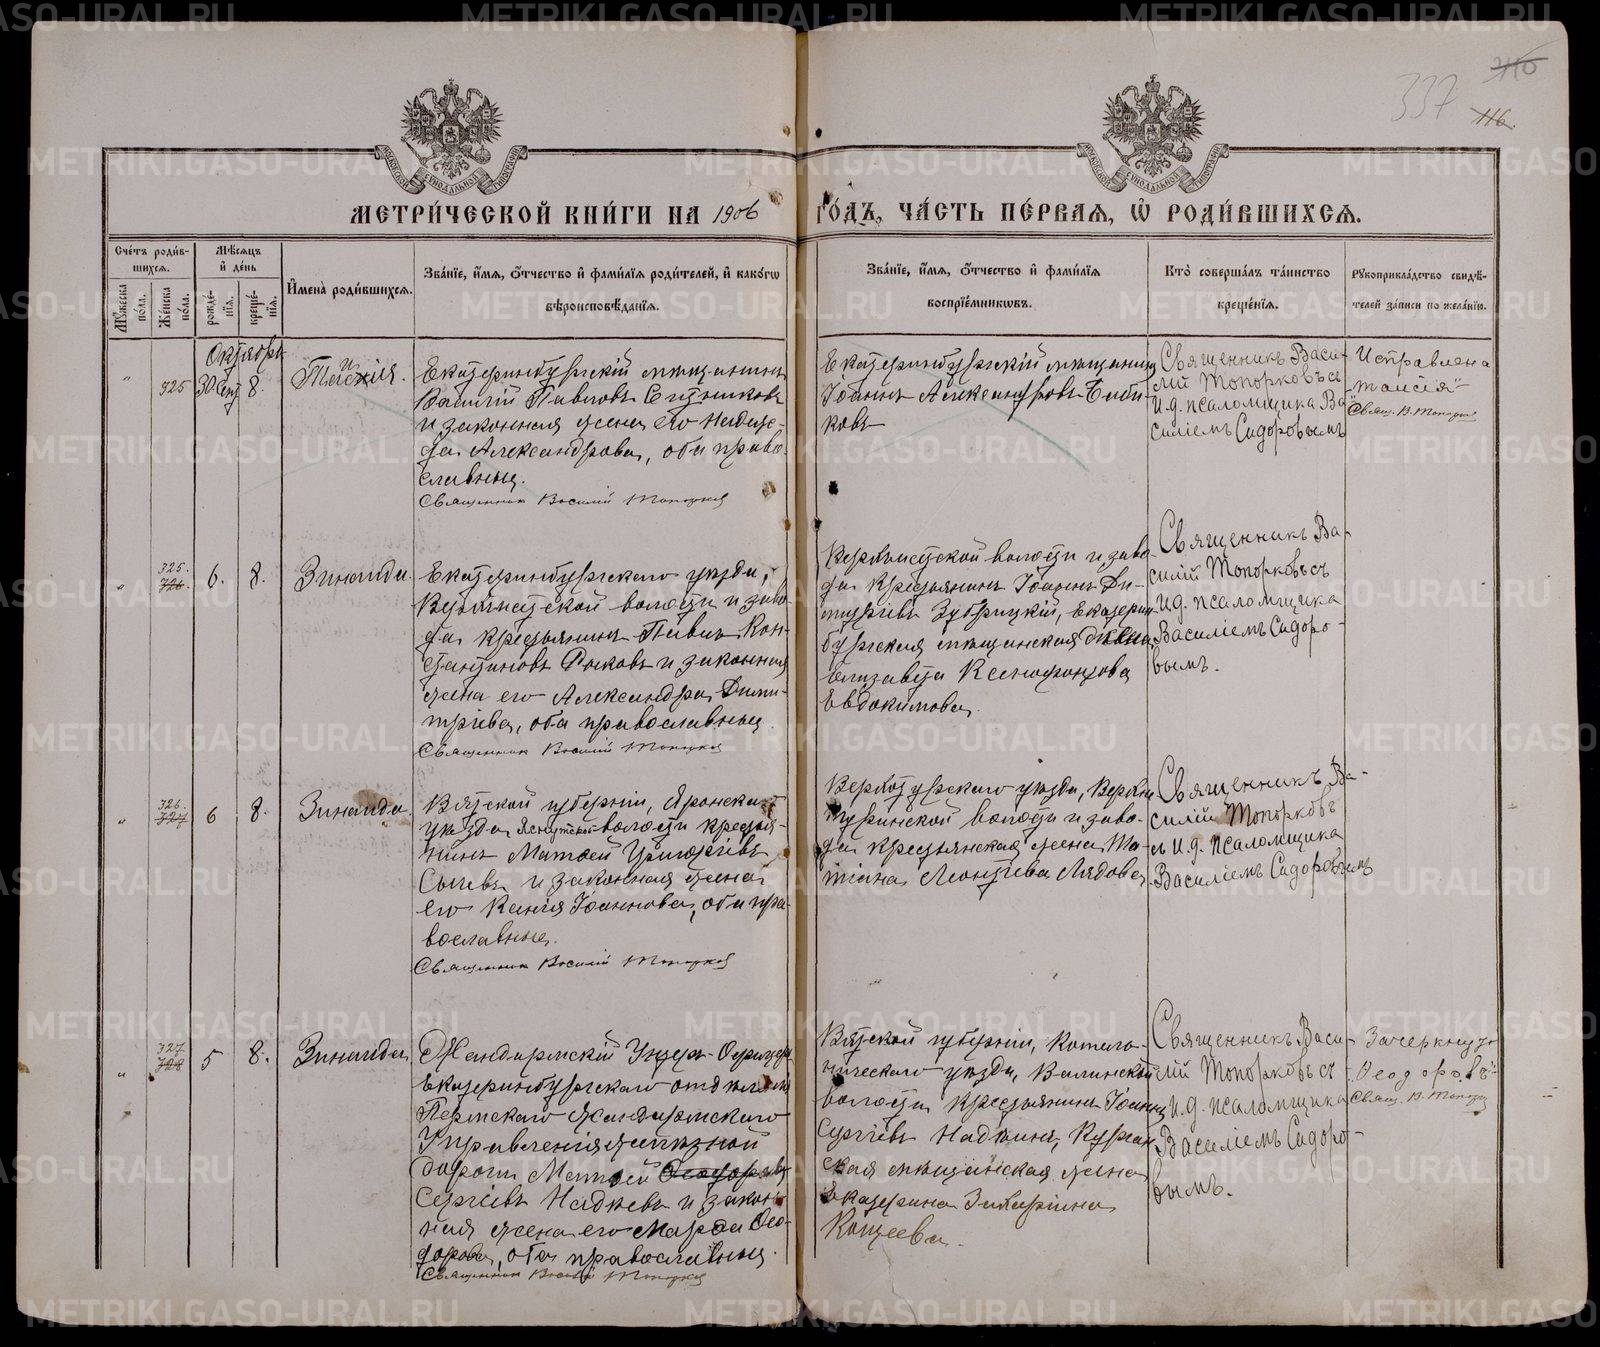 337
116.
МЕТРИ́ЧЕСКОЙ КНИ́ГИ НА 1906
ГО́ДЪ, ЧА́СТЬ ПЕ́РВАЯ, Ѡ҆ РОДИ́ВШИХСѦ.
Сче́тъ роди́в-
шихсѧ.
Мꙋ́жеска
по́ла.
Же́нска
по́ла.
Мѣ́сѧцъ
и҆ де́нь
рожде́-
нїѧ.
креще́-
нїѧ.
И҆мена̀ роди́вшихсѧ.
Зва́нїе, и҆́мѧ, ѻ҆́тчество и҆ фами́лїѧ роди́телей, и҆ како́гѡ
вѣроисповѣ́данїѧ.
Зва́нїе, и҆́мѧ, ѻ҆́тчество и҆ фами́лїѧ
воспрїе́мникѡвъ.
Кто̀ соверша́лъ та́инство
креще́нїѧ.
Рꙋкоприкла́дство свидѣ́-
телей за́писи по жела́нїю.
Октября
325
30 Сент
8.
Таисія.
Екатеринбургскій мѣщанинъ
Василій Павловъ Ситниковъ
и законная жена его Надеж-
да Александрова, оба право-
славные.
Священникъ Василій Топорковъ
Екатеринбургскій мѣщанинъ
Іоаннъ Александровъ Биби-
ковъ
Священникъ Васи-
лій Топорковъ съ
и.д. псаломщика Ва
силіемъ Сидоровымъ
Исправлено
"таисія"
Свящ. В. Топорковъ
325.
726.
6.
8.
Зинаида
Екатеринбургскаго уѣзда,
Верхъисетской волости и заво-
да крестьянинъ Павелъ Кон-
стантиновъ и законная
жена его Александра Дими-
тріева, оба православные.
Священникъ Василій Топорковъ
Верхъисетской волости и заво-
да крестьянинъ Іоаннъ Ди-
митріевъ Зубрицкій, Екатерин-
бургская мѣщанская дѣвица
Елизавета Ксенофонтова
Евдокимова.
Священникъ Ва-
силій Топорковъ съ
и.д. псаломщика
Василіемъ Сидоро-
вымъ.
326.
727
6
8.
Зинаида.
Вятской губерніи, Яранскаго
уѣзда волости крестья-
нинъ Матѳей Григорьевъ
Сычевъ и законная жена
его Ксенія Іоаннова, оба пра-
вославные.
Священникъ Василій Топорковъ
Верхотурскаго уѣзда, Верхне-
туринской волости и заво-
да крестьянская жена Та-
тіана Леонтіева Лядова.
Священникъ Ва-
силій Топорковъ
съ и.д. псаломщика
Василіемъ Сидоровымъ
327
728
5
8.
Зинаида
Жандармскій Унтеръ-Офицеръ
Екатеринбургскаго отдѣленія
Пермскаго Жандармскаго
Управленія желѣзной
дороги Матѳей Ѳеодоровъ
Сергіевъ и закон-
ная жена его Марѳа Ѳео-
дорова, оба православные.
Священникъ Василій Топорковъ
Вятской губерніи, Котель-
ническаго уѣзда,
волости крестьянинъ Іоаннъ
Сергіевъ Курган-
ская мѣщанская жена
Екатерина
Священникъ Васи-
лій Топорковъ съ
и.д. псаломщика
Василіемъ Сидоро-
вымъ.
Зачеркнуто
"Ѳеодоровъ"
Свящ. В. Топорковъ
METRIKI.GASO-URAL.RU